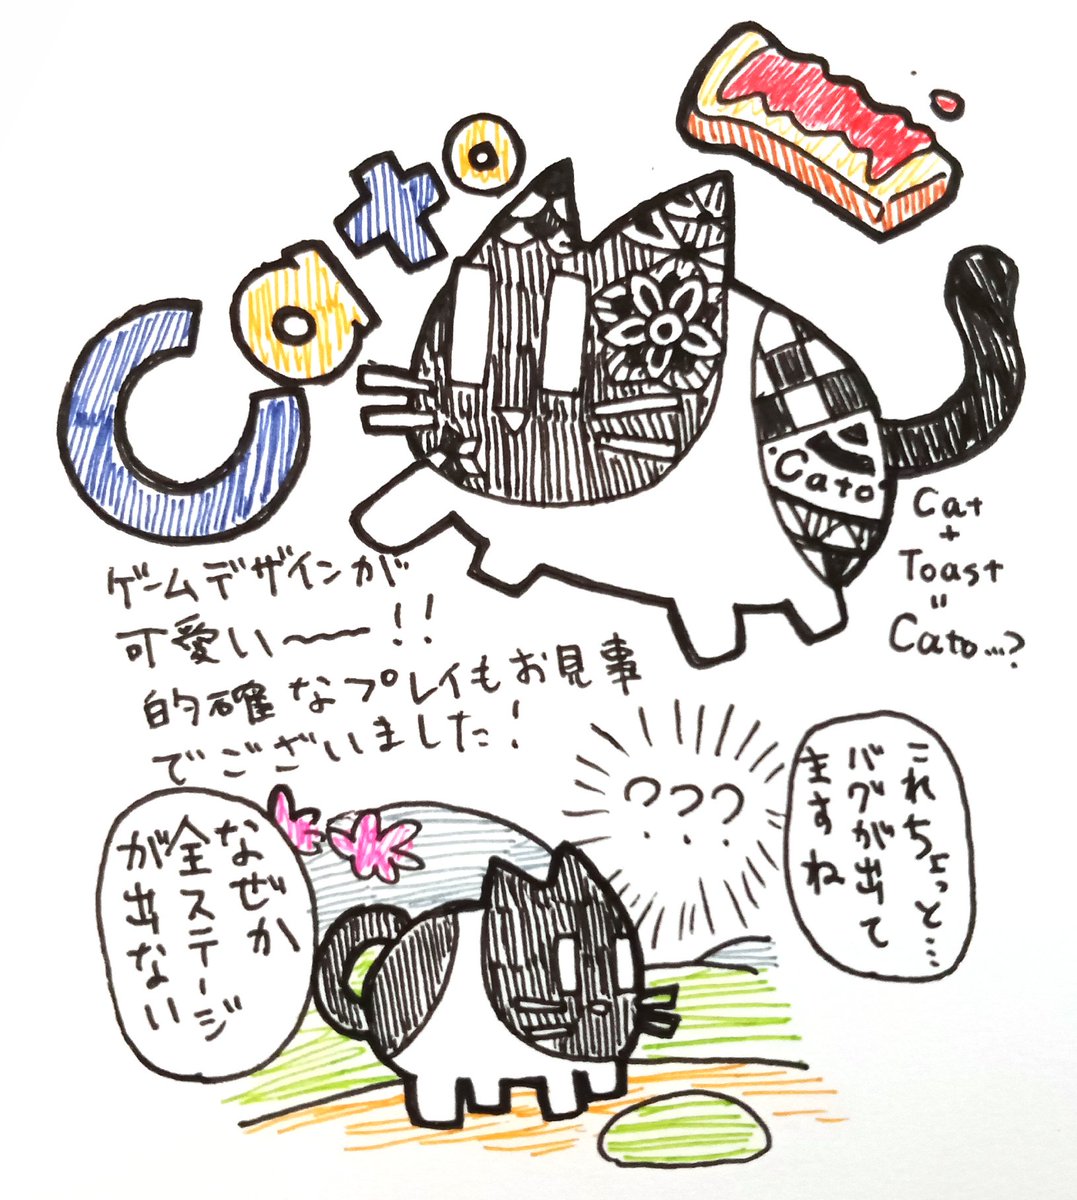 Cato
Cato
Cat
+
Toast
=
Cato…?
ゲームデザインが
可愛い〜〜!!
的確なプレイもお見事
でございました!
???
これちょっと…
バグが出て
ますね
なぜか
全ステージ
が出ない